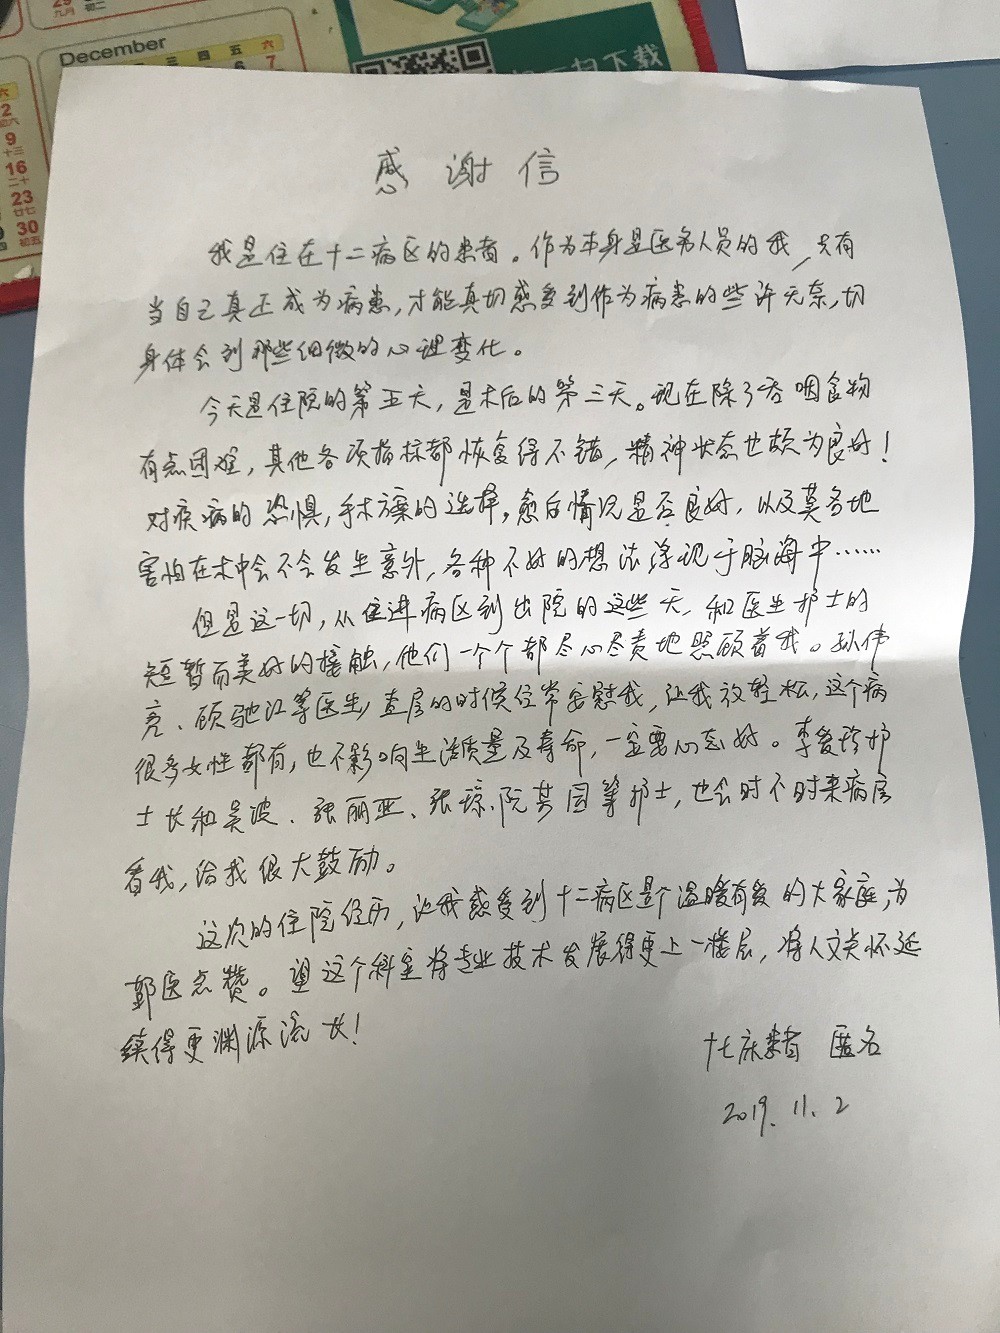 December
三 四 五 六
6 7
29
九月 初二
六
2
初六
9
十三
16
二十
23
廿七
30
初五
扫下载
感谢信
我是住在十二病区的患者。作为本身是医务人员的我，只有
当自己真正成为病患，才能真切感受到作为病患的些许无奈，切
身体会到那些细微的心理变化。
今天是住院的第五天，是术后的第三天。现在除了吞咽食物
有点困难，其他各项指标都恢复得不错，精神状态也颇为良好！
对疾病的恐惧，手术方案的选择，愈后情况是否良好，以及莫名地
害怕在术中会不会发生意外，各种不好的想法浮现于脑海中……
但是这一切，从住进病区到出院的这些天，和医生护士的
短暂而美好的接触，他们一个个都尽心尽责地照顾着我。孙伟
亮、顾驰江等医生，查房的时候经常安慰我，让我放轻松，这个病
很多女性都有，也不影响生活质量及寿命，一定要心态好。李爱珍护
士长和吴波、张丽亚、张琼、阮其园等护士，也会时不时来病房
看我，给我很大鼓励。
这次的住院经历，让我感受到十二病区是个温暖有爱的大家庭，为
鄞医点赞。望这个科室将专业技术发展得更上一楼层，将人文关怀延
续得更渊源流长！
十七床患者 匿名
2019.11.2